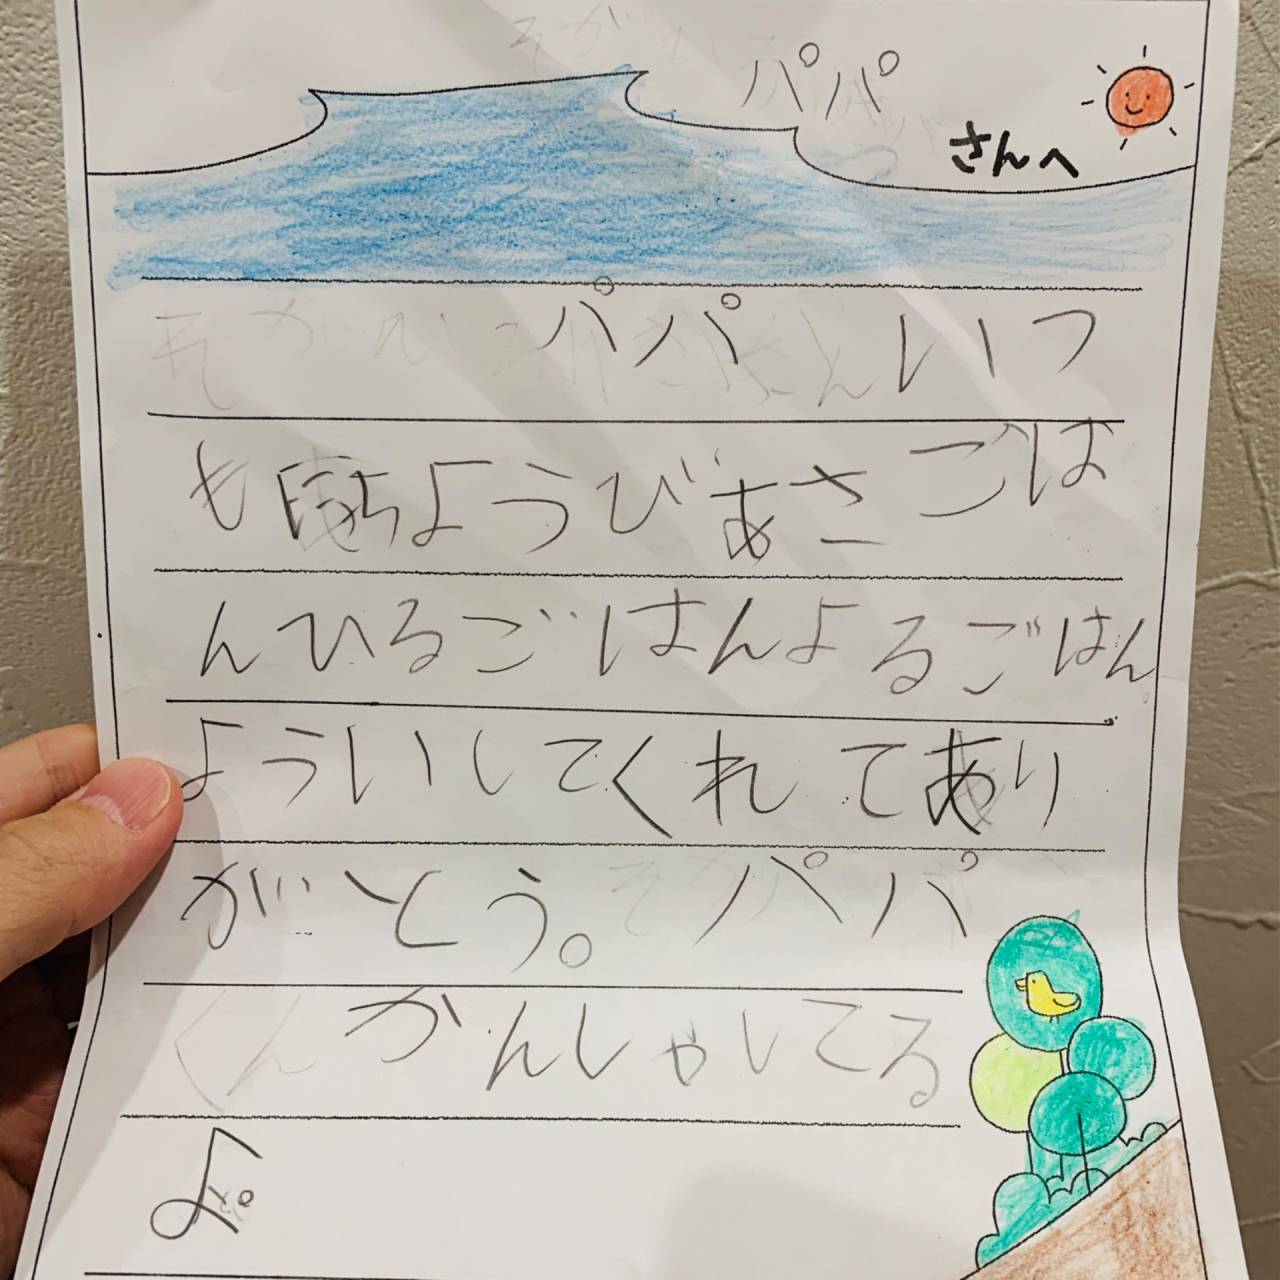 パパ
さんへ
パパ いつ
も ようびあさごは
んひるごはんよるごはん
よういしてくれてあり
がとう。パパ
かんしゃしてる
よ。